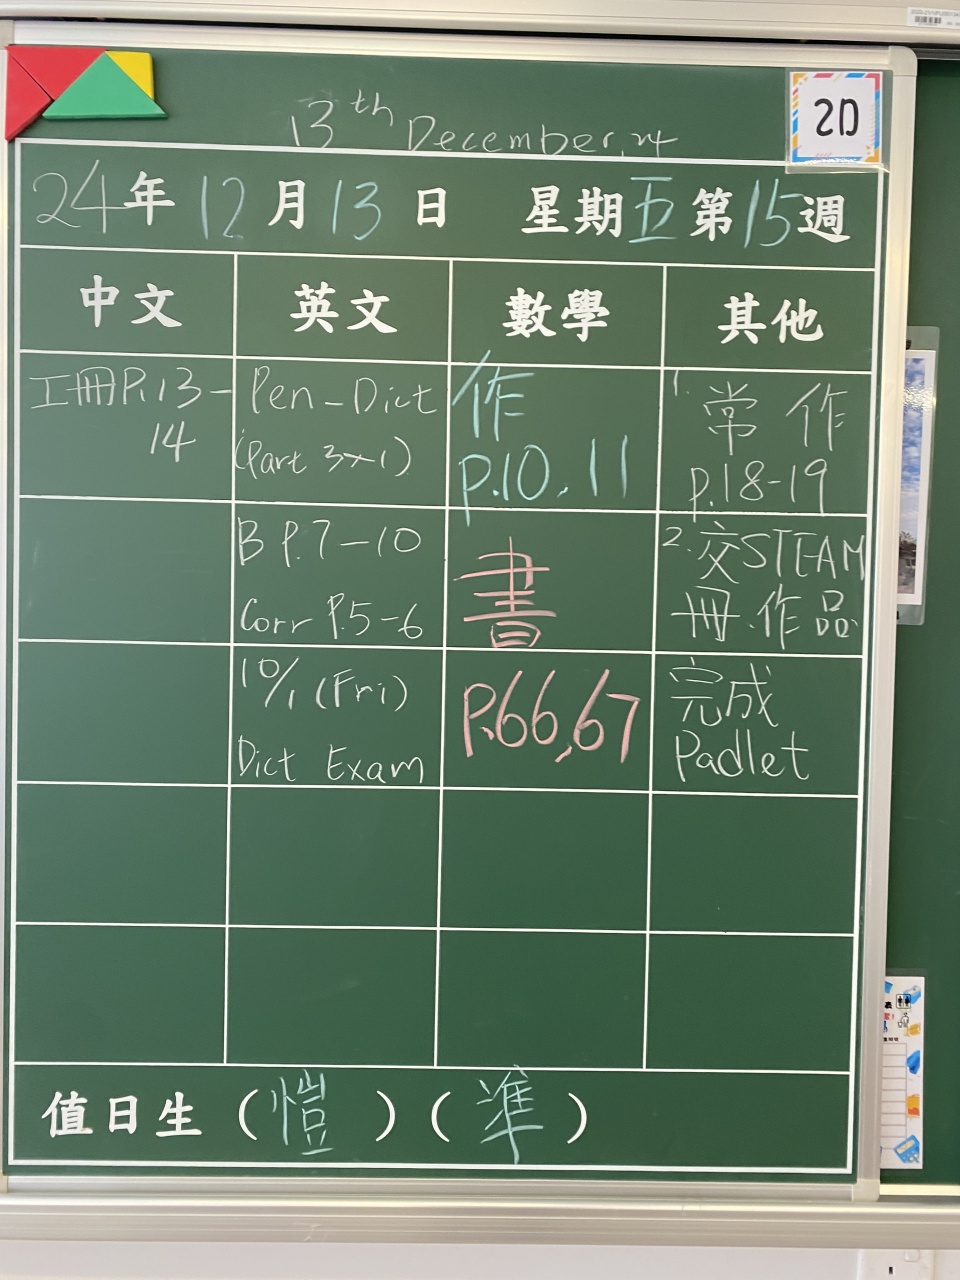 13th December, 24
2D
24年12月13日 星期五第15週
中文 英文 數學 其他
工冊P.13-
14
Pen-Dict
(Part 3×1)
作
p.10, 11
1. 常作
p.18-19
B P.7-10
Corr P.5-6
書
2. 交STEAM
冊、作品
10/1 (Fri)
Dict Exam
P.66,67
完成
Padlet
值日生(愷)(準)